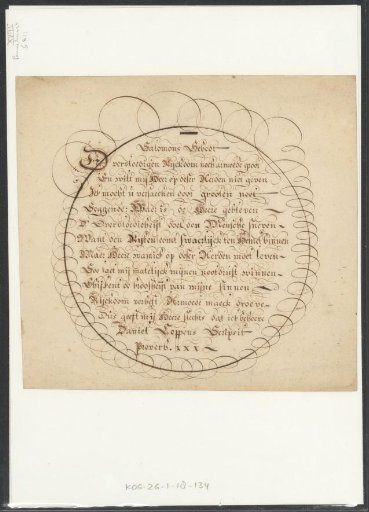 Salomons Gebedt
overvloedigen Rijckdom noch armoede groot
En wilt mij Heer op deser Aerden niet geven
Ick mocht u versaecken door grooten noot
Seggende: Waer is de Heere gebleven
D' Overvloedicheijt doet den Mensche sneven
Want den Rijken comt swaerlijck ten Hemel binnen
Maer Heere wanneer op deser Aerden moet leven
Soo laet mij matelijck mijnen nootdruft winnen
de boosheijt van mijne sinnen
Rijckdom verheft Armoede maeckt droeve
Dus geeft mij Heere slechts dat ick behoeve
Daniel Coppens Scripsit
Proverb. xxx
KOG-ZG-1-18-134